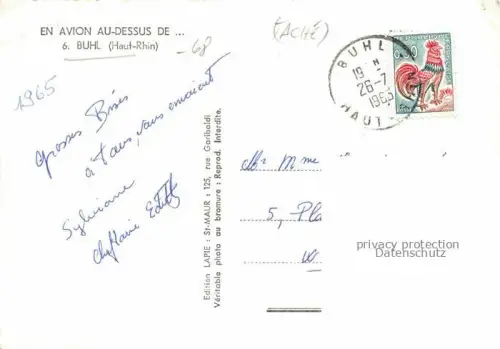 EN AVION AU-DESSUS DE ...
6. BUHL (Haut-Rhin)
-68
(ACHÉ)
1965
BUHL
19 H
26-7
1965
HAUT-
0,30
Grosses Bises
à tous, vous envoient
Sylviane
Edition LAPIE : St-MAUR : 125, rue Garibaldi
Véritable photo au bromure : Reprod. Interdite.
Mr Mme
5, Pla
privacy protection
Datenschutz